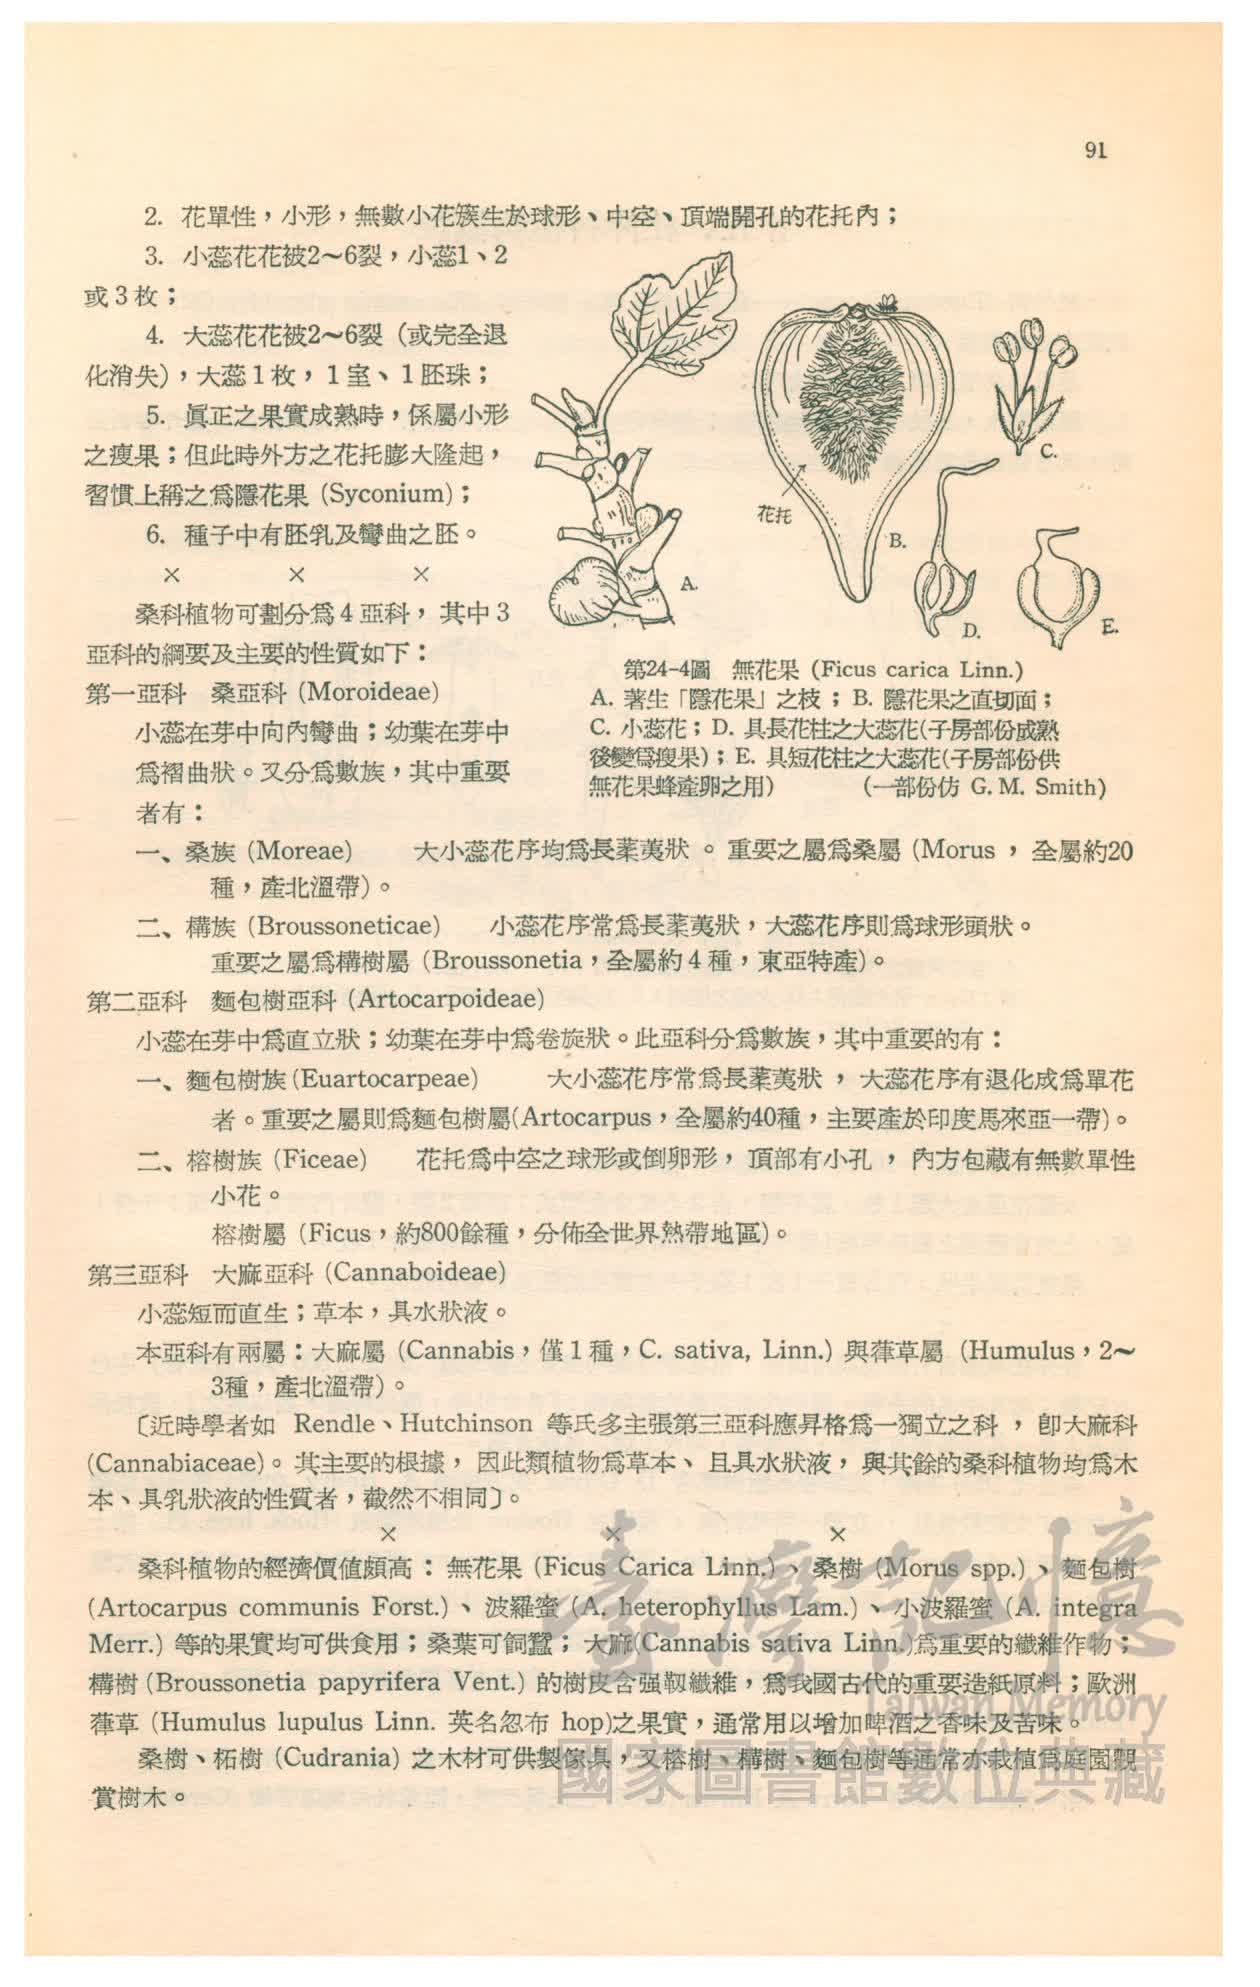 91
2. 花單性，小形，無數小花簇生於球形、中空、頂端開孔的花托內；
3. 小蕊花花被2～6裂，小蕊1、2
或3枚；
4. 大蕊花花被2～6裂（或完全退
化消失），大蕊1枚，1室、1胚珠；
5. 眞正之果實成熟時，係屬小形
之瘦果；但此時外方之花托膨大隆起，
習慣上稱之爲隱花果 (Syconium)；
6. 種子中有胚乳及彎曲之胚。
×　×　×
桑科植物可劃分爲4亞科，其中3
亞科的綱要及主要的性質如下：
第一亞科　桑亞科 (Moroideae)
小蕊在芽中向內彎曲；幼葉在芽中
爲褶曲狀。又分爲數族，其中重要
者有：
花托
A.
B.
C.
D.
E.
第24-4圖　無花果 (Ficus carica Linn.)
A. 著生「隱花果」之枝；B. 隱花果之直切面；
C. 小蕊花；D. 具長花柱之大蕊花(子房部份成熟
後變爲瘦果)；E. 具短花柱之大蕊花(子房部份供
無花果蜂產卵之用)　(一部份仿 G. M. Smith)
一、桑族 (Moreae)　大小蕊花序均爲長葇荑狀。重要之屬爲桑屬 (Morus，全屬約20
種，產北溫帶)。
二、構族 (Broussoneticae)　小蕊花序常爲長葇荑狀，大蕊花序則爲球形頭狀。
重要之屬爲構樹屬 (Broussonetia，全屬約4種，東亞特產)。
第二亞科　麵包樹亞科 (Artocarpoideae)
小蕊在芽中爲直立狀；幼葉在芽中爲卷旋狀。此亞科分爲數族，其中重要的有：
一、麵包樹族 (Euartocarpeae)　大小蕊花序常爲長葇荑狀，大蕊花序有退化成爲單花
者。重要之屬則爲麵包樹屬(Artocarpus，全屬約40種，主要產於印度馬來亞一帶)。
二、榕樹族 (Ficeae)　花托爲中空之球形或倒卵形，頂部有小孔，內方包藏有無數單性
小花。
榕樹屬 (Ficus，約800餘種，分佈全世界熱帶地區)。
第三亞科　大麻亞科 (Cannaboideae)
小蕊短而直生；草本，具水狀液。
本亞科有兩屬：大麻屬 (Cannabis，僅1種，C. sativa, Linn.) 與葎草屬 (Humulus，2～
3種，產北溫帶)。
〔近時學者如 Rendle、Hutchinson 等氏多主張第三亞科應昇格爲一獨立之科，卽大麻科
(Cannabiaceae)。其主要的根據，因此類植物爲草本、且具水狀液，與其餘的桑科植物均爲木
本、具乳狀液的性質者，截然不相同〕。
×　×　×
桑科植物的經濟價值頗高：無花果 (Ficus Carica Linn.)、桑樹 (Morus spp.)、麵包樹
(Artocarpus communis Forst.)、波羅蜜 (A. heterophyllus Lam.)、小波羅蜜 (A. integra
Merr.) 等的果實均可供食用；桑葉可飼蠶；大麻(Cannabis sativa Linn.)爲重要的纖維作物；
構樹 (Broussonetia papyrifera Vent.) 的樹皮含强靱纖維，爲我國古代的重要造紙原料；歐洲
葎草 (Humulus lupulus Linn. 英名忽布 hop)之果實，通常用以增加啤酒之香味及苦味。
桑樹、柘樹 (Cudrania) 之木材可供製傢具，又榕樹、構樹、麵包樹等通常亦栽植爲庭園觀
賞樹木。
臺灣記憶
Taiwan Memory
國家圖書館數位典藏